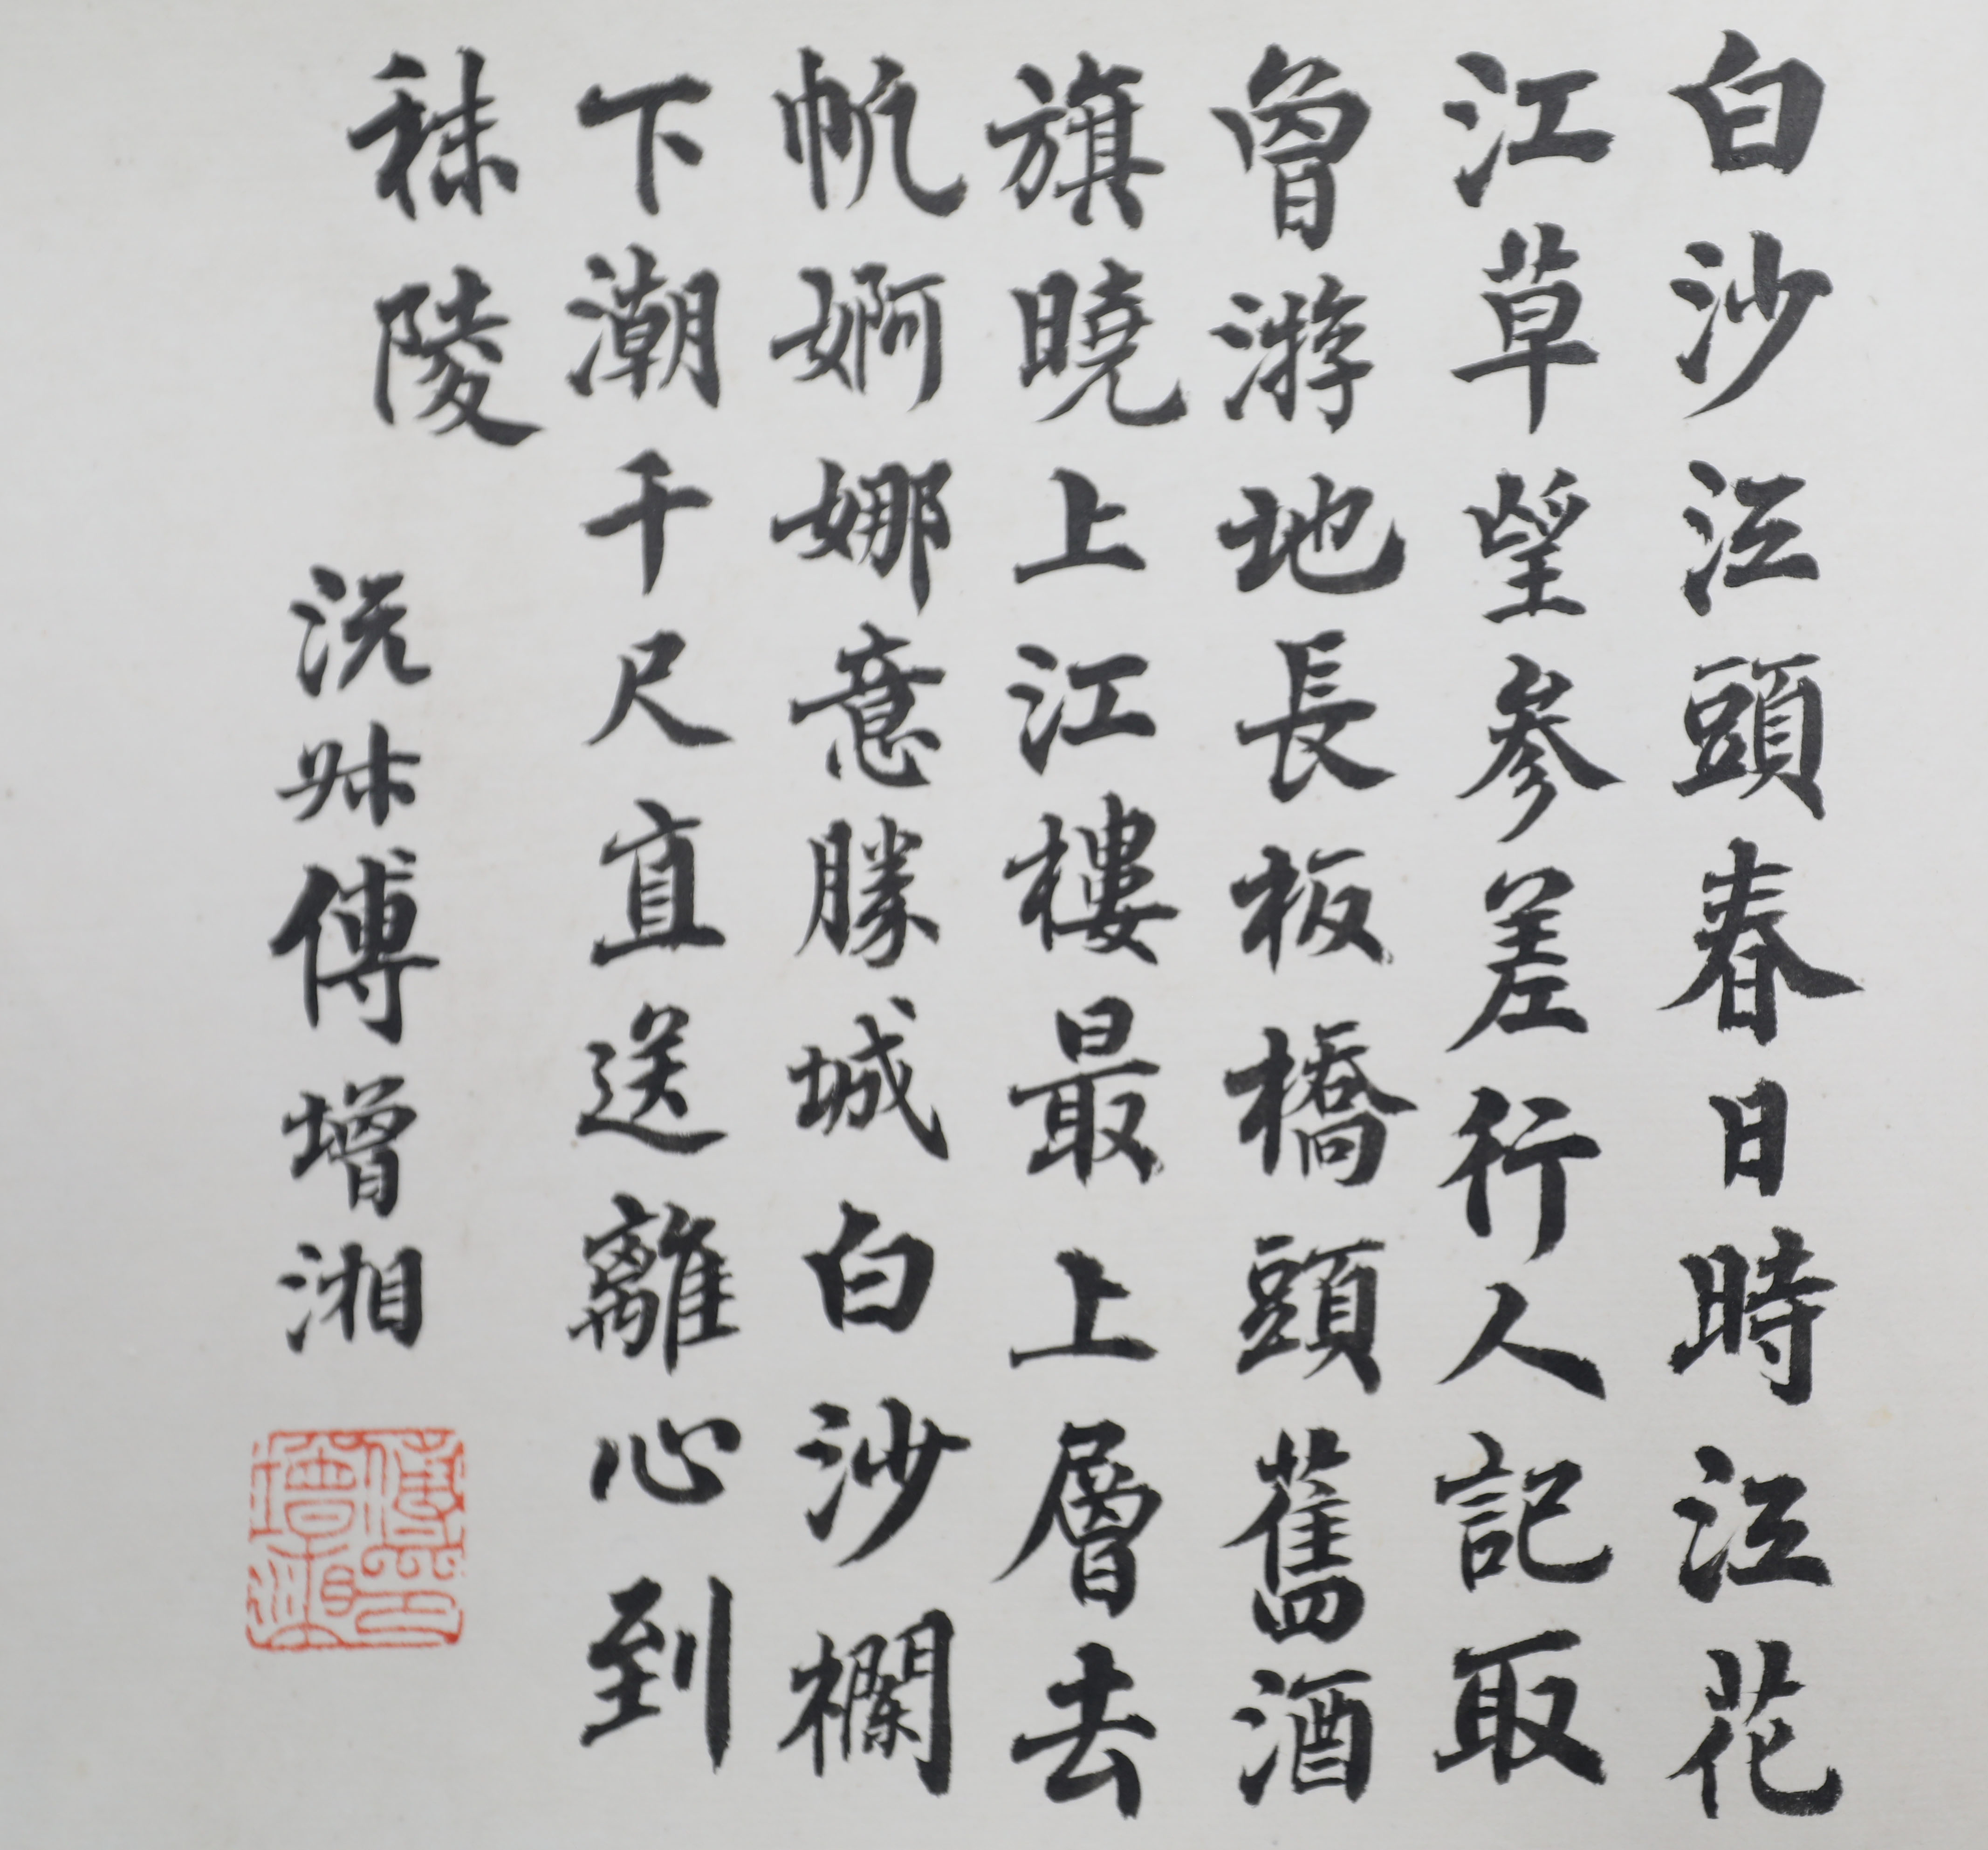 白沙江頭春日時江花
江草望參差行人記取
曾游地長板橋頭舊酒
旗曉上江樓最上層去
帆婀娜意勝城白沙欄
下潮千尺直送離心到
秣陵
沅叔傅增湘
傅印
增湘